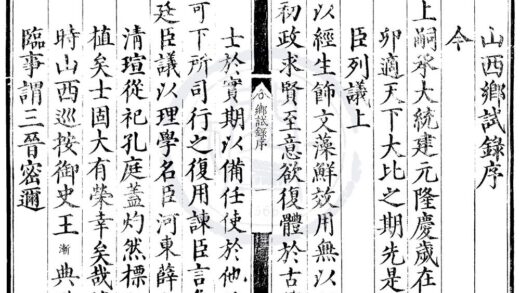 山西鄉試錄序
今
上嗣承大統建元隆慶歲在
卯適天下大比之期先是
臣列議上
以經生飾文藻鮮效用無以
初政求賢至意欲復體於古
鄉試錄序
一
士於實期以備任使於他
可下所司行之復用諫臣言
廷臣議以理學名臣河東薛
清瑄從祀孔庭蓋灼然標
植矣士固大有榮幸矣哉
時山西巡按御史王漸典
臨事謂三晉密邇